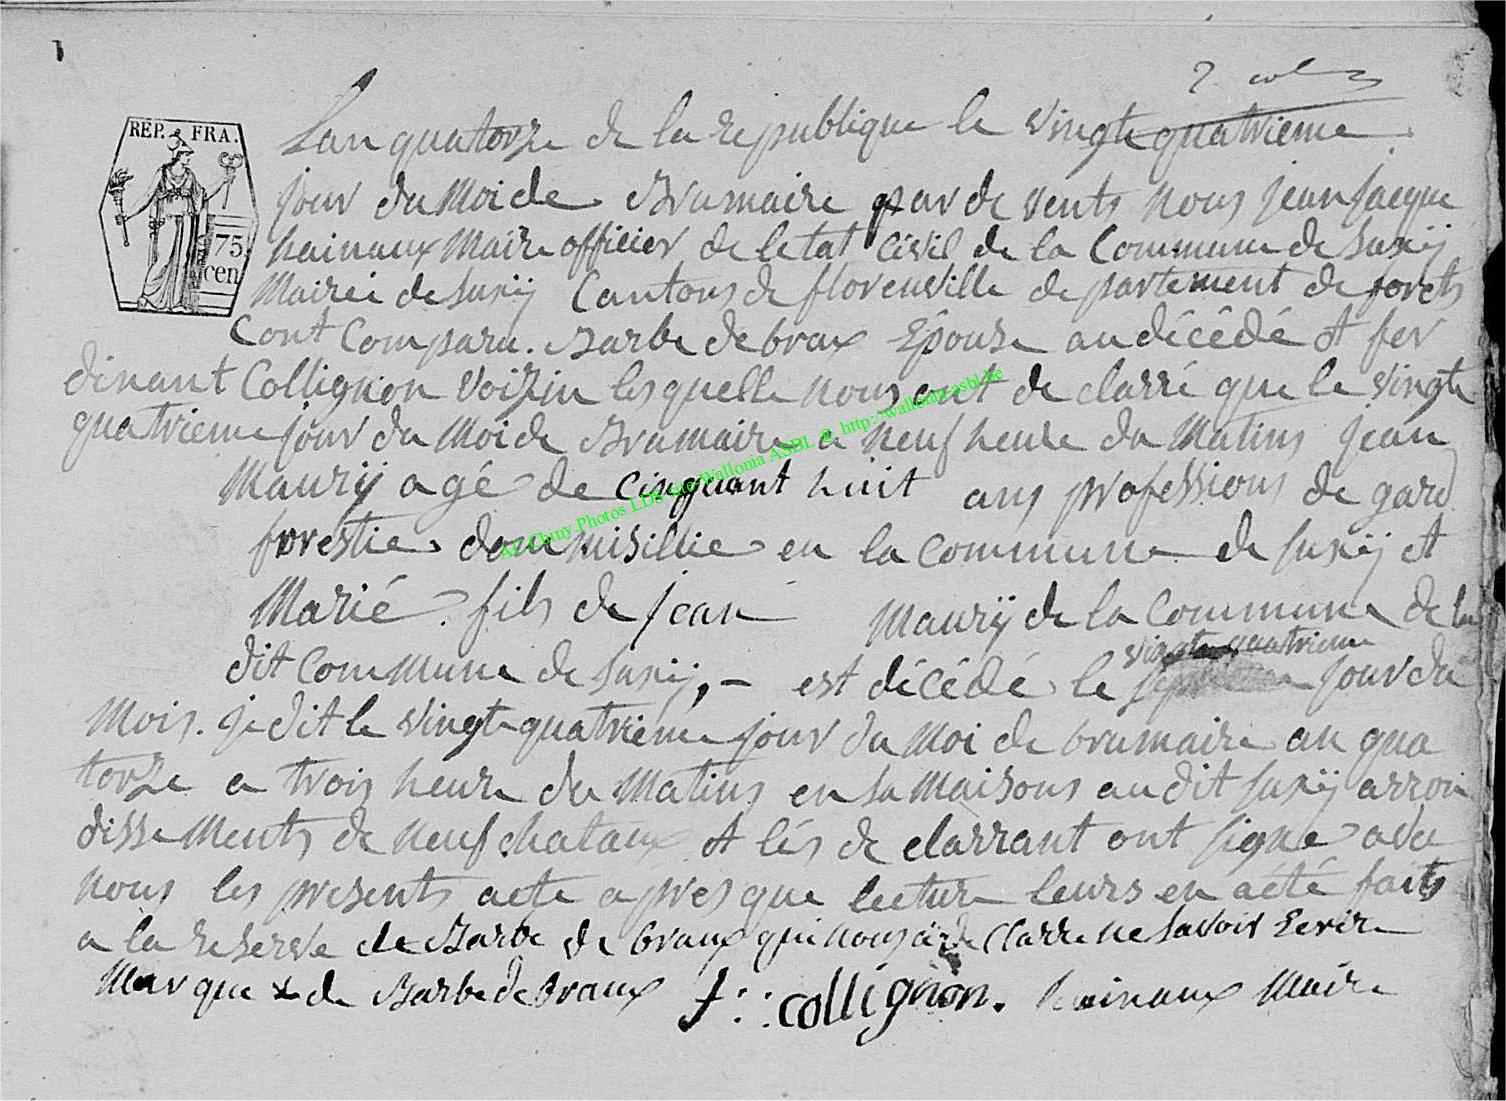 2. col
REP. FRA.
75
cen
Lan quatorze de la republique le vingte quatrieme
jour du Moi de Brumaire par de vents nous jean jacque
hainaux Maire officier de letat Civil de la Commune de Suxÿ
Mairei de Suxÿ Cantons de florenville de partement de forets
Cont Comparu. Barbe de braux Epouse au décédé et fer
dinant Collignon voizin les quelle nous ont de clarré que le vingte
quatrieme jour du Moi de Brumaire a neuf heure du Matins jean
Maurÿ agé de Cinquant huit ans professions de gard
forestie dommisillie en la Commune de Suxÿ et
Marié fils de jean Maurÿ de la Commune de la
dit Commune de Suxÿ, - est décédé le vingte quatrieme jour du
Mois. je dit le vingte quatrieme jour du Moi de brumaire an qua
torze a trois heure du Matins en sa Maisons au dit Suxÿ arron
disse Ments de neufchataux et lés de clarrant ont signe avec
nous les presents acte apres que lecture leurs en aété faits
a la reserve de Barbe de braux qui nous a de Clarre ne Savoir Ecrire
Marque x de Barbe de braux f:: collignon. hainaux Maire
AE Chiny Photos LDS site Wallonia ASBL @ http://walloniaasbl.be